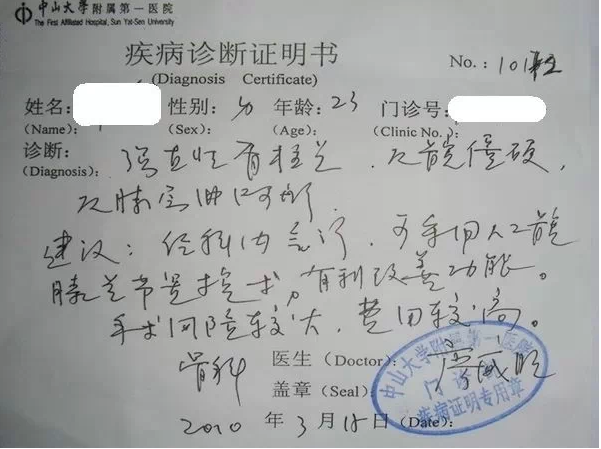 中山大学附属第一医院
The First Affiliated Hospital, Sun Yat-Sen University
疾病诊断证明书
(Diagnosis Certificate)
No.: 101
姓名: 性别: 男 年龄: 23 门诊号:
(Name): (Sex): (Age): (Clinic No.):
诊断: 强直性脊柱炎, 双髋僵硬,
(Diagnosis):
双膝
建议: 可手术人工髋
膝关节置换术, 有利改善功能。
手术风险较大, 费用较高。
骨科 医生 (Doctor):
盖章 (Seal):
2010 年 3 月 18日 (Date):
中山大学附属第一医院
门诊部
疾病证明专用章